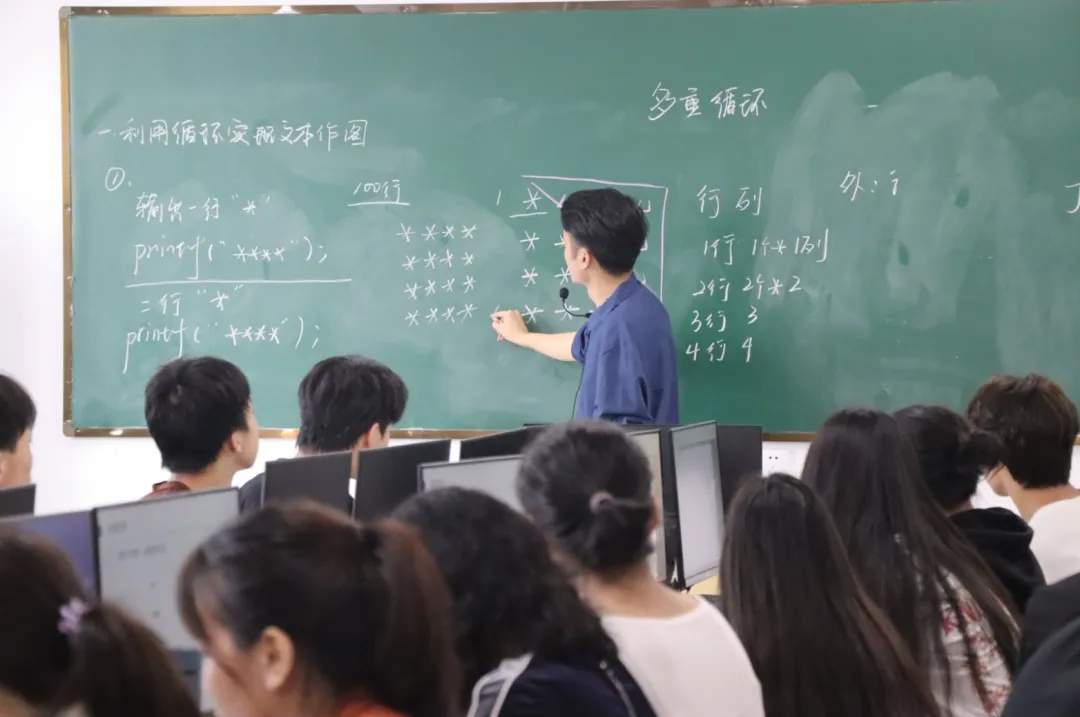 多重循环
一.利用循环实现文本作图
①.
输出一行"*"
printf("****");
二行"*"
printf("****");
100行
****
****
****
****
1 *
* *
* *
* *
行 列
1行 1个* 1列
2行 2个* 2
3行 3
4行 4
外:i